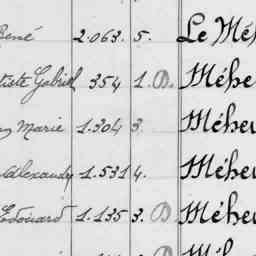 René 2.063. 5. Le Mé
tiste Gabriel 354 1. D. Méhe
Marie 1.304 3. Méheu
Alexandre 1.531 4. Méheu
Edouard 1.135 3. D Méheu